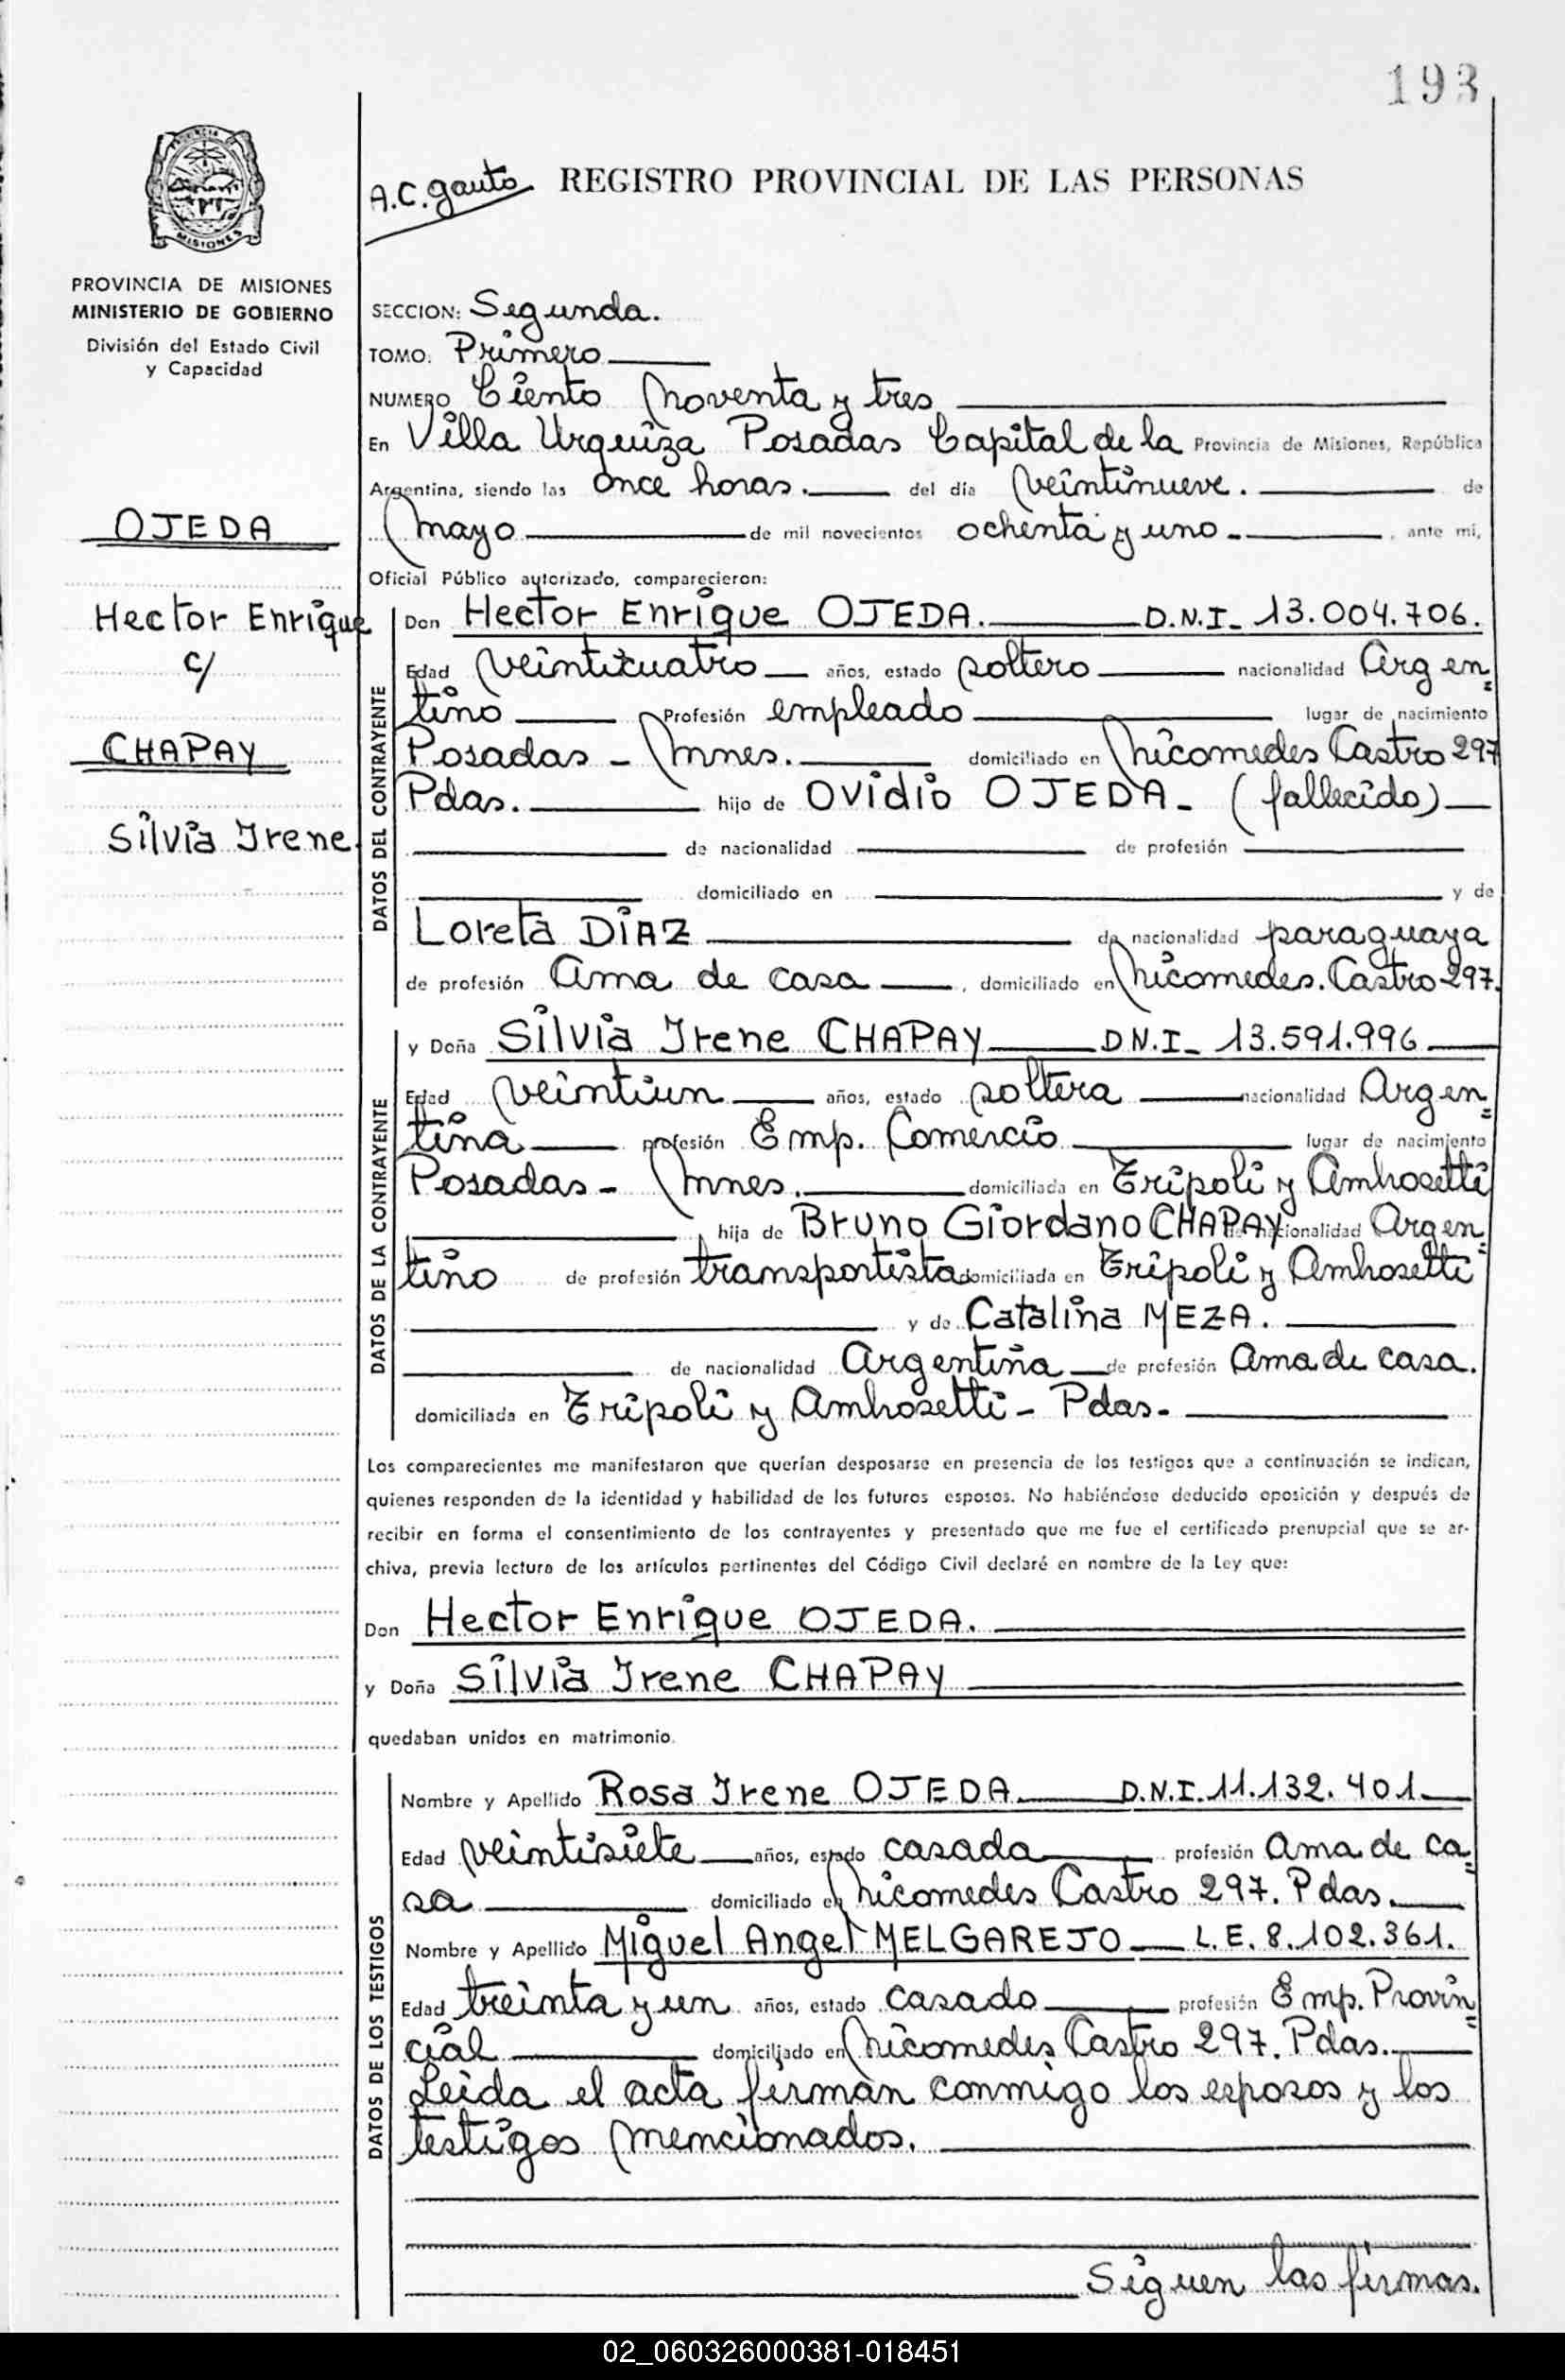 193
PROVINCIA
MISIONES
A.C. Gauto REGISTRO PROVINCIAL DE LAS PERSONAS
PROVINCIA DE MISIONES
MINISTERIO DE GOBIERNO
División del Estado Civil
y Capacidad
OJEDA
Hector Enrique
c/
CHAPAY
Silvia Irene
SECCION: Segunda.
TOMO: Primero
NUMERO Ciento noventa y tres
En Villa Urquiza Posadas Capital de la Provincia de Misiones, República
Argentina, siendo las once horas. del día veintinueve. de
mayo de mil novecientos ochenta y uno , ante mi,
Oficial Público autorizado, comparecieron:
DATOS DEL CONTRAYENTE
Don Hector Enrique OJEDA. D.N.I. 13.004.706.
Edad veinticuatro años, estado soltero nacionalidad Argen=
tino Profesión empleado lugar de nacimiento
Posadas - Mnes. domiciliado en Nicomedes Castro 297
Pdas. hijo de Ovidio OJEDA - (fallecido)
de nacionalidad de profesión
domiciliado en y de
Loreta DIAZ de nacionalidad paraguaya
de profesión Ama de casa , domiciliado en Nicomedes. Castro 297.
DATOS DE LA CONTRAYENTE
y Doña Silvia Irene CHAPAY D.N.I. 13.591.996
Edad veintiun años, estado soltera nacionalidad Argen=
tina profesión Emp. Comercio lugar de nacimiento
Posadas - Mnes. domiciliada en Tripoli y Ambosetti
hija de Bruno Giordano CHAPAY de nacionalidad Argen=
tino de profesión transportista domiciliada en Tripoli y Ambosetti
y de Catalina MEZA.
de nacionalidad Argentina de profesión Ama de casa.
domiciliada en Tripoli y Ambosetti - Pdas.
Los comparecientes me manifestaron que querían desposarse en presencia de los testigos que a continuación se indican,
quienes responden de la identidad y habilidad de los futuros esposos. No habiéndose deducido oposición y después de
recibir en forma el consentimiento de los contrayentes y presentado que me fue el certificado prenupcial que se ar-
chiva, previa lectura de los artículos pertinentes del Código Civil declaré en nombre de la Ley que:
Don Hector Enrique OJEDA.
y Doña Silvia Irene CHAPAY
quedaban unidos en matrimonio.
DATOS DE LOS TESTIGOS
Nombre y Apellido Rosa Irene OJEDA D.N.I. 11.132.401
Edad veintisiete años, estado casada profesión Ama de ca=
sa domiciliado en Nicomedes Castro 297. Pdas.
Nombre y Apellido Miguel Angel MELGAREJO L.E. 8.102.361.
Edad treinta y un años, estado casado profesión Emp. Provin=
cial domiciliado en Nicomedes Castro 297. Pdas.
Leida el acta firman conmigo los esposos y los
testigos mencionados.
Siguen las firmas.
02_060326000381-018451